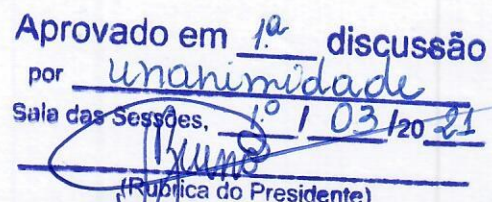 Aprovado em 1ª discussão
por unanimidade
Sala das Sessões, 1º / 03 /20 21
(Rubrica do Presidente)